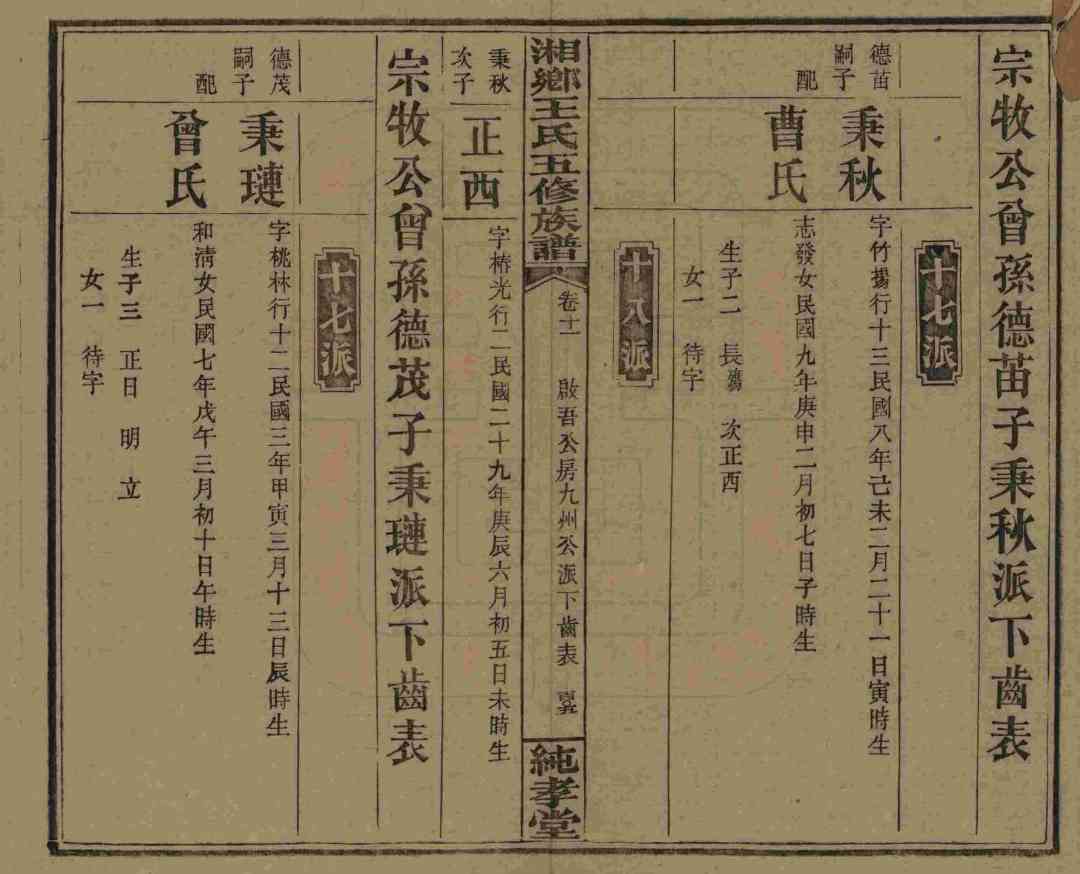 宗牧公曾孫德苗子秉秋派下齒表
十七派
德苗
嗣子
秉秋
字竹攀行十三民國八年己未二月二十一日寅時生
配
曹氏
志發女民國九年庚申二月初七日子時生
生子二 長殤 次正西
女一 待字
十八派
湘鄉王氏五修族譜
卷十一
啟吾公房九州公派下齒表
純孝堂
秉秋
次子
正西
字椿光行二民國二十九年庚辰六月初五日未時生
宗牧公曾孫德茂子秉璉派下齒表
十七派
德茂
嗣子
秉璉
字桃林行十二民國三年甲寅三月十三日辰時生
配
曾氏
和清女民國七年戊午三月初十日午時生
生子三 正日 明 立
女一 待字